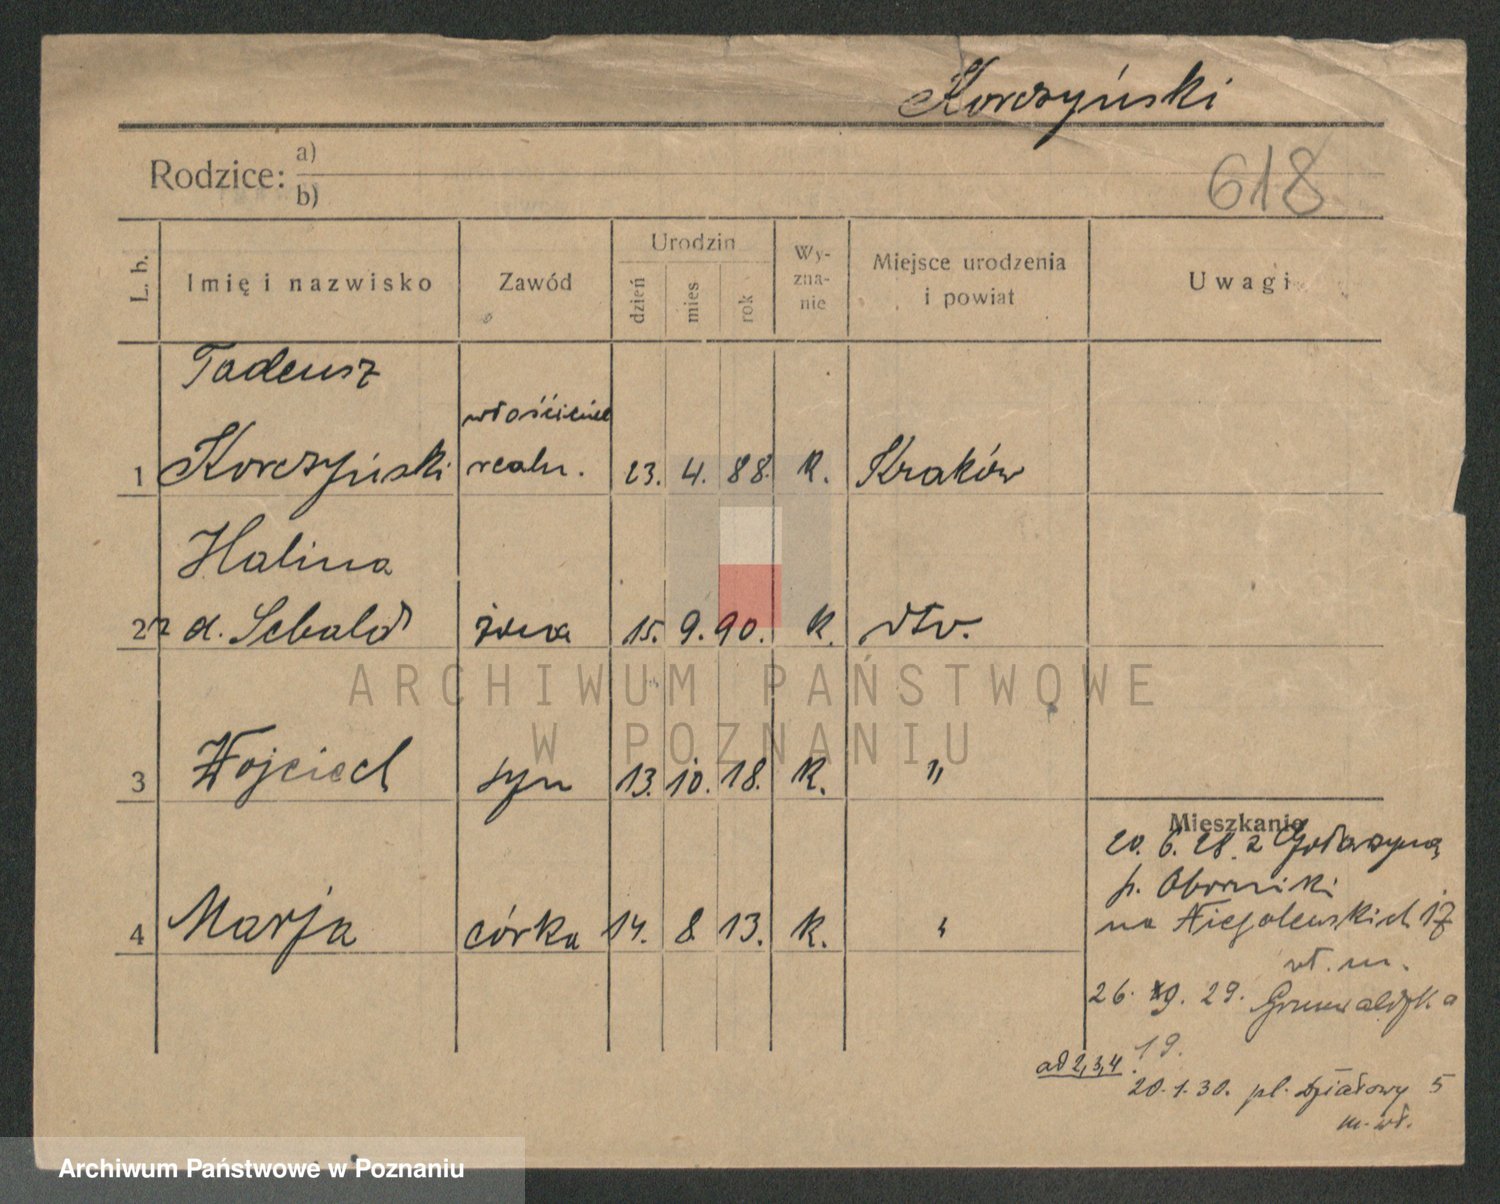 Korczyński
618
Rodzice: a)
b)
L. b.
Imię i nazwisko
Zawód
Urodzin
dzień
mies
rok
Wy-
zna-
nie
Miejsce urodzenia
i powiat
Uwagi
Tadeusz
właściciel
1 Korczyński realn. 23. 4. 88. k. Kraków
Halina
2 z d. Sebald żona 15. 9. 90. k. dto.
3 Wojciech syn 13. 10. 18. k. "
4 Marja córka 14. 8. 13. k. "
Mieszkanie
20. 6. 28. z
p. Oborniki
na Niegolewskich 17
wł. m.
26. 9. 29. Grunwaldzka
19.
ad 2,3,4
20.1.30. pl. Działowy 5
m. wł.
ARCHIWUM PAŃSTWOWE
W POZNANIU
Archiwum Państwowe w Poznaniu